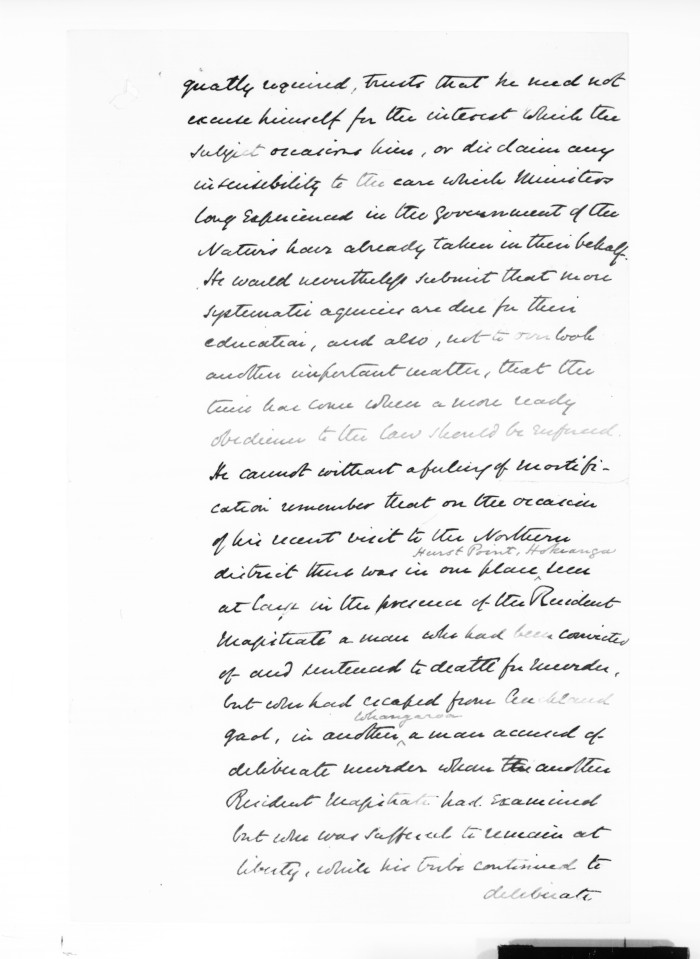 greatly required, trusts that he need not
excuse himself for the interest which the
subject occasions him, or disclaim any
insensibility to the care which Ministers
long experienced in the Government of the
Natives have already taken in their behalf.
He would nevertheless submit that more
systematic agencies are due for their
education, and also, not to overlook
another important matter, that the
time has come when a more ready
obedience to the law should be enforced.
He cannot without a feeling of mortifi-
cation remember that on the occasion
of his recent visit to the Northern
Hurst Point, Hokianga
district there was in one place ^ seen
at large in the presence of the Resident
Magistrate a man who had been convicted
of and sentenced to death for murder,
but who had escaped from Auckland
Whangaroa
gaol, in another ^ a man accused of
deliberate murder whom the another
Resident Magistrate had examined
but who was suffered to remain at
liberty, while his tribe continued to
deliberate